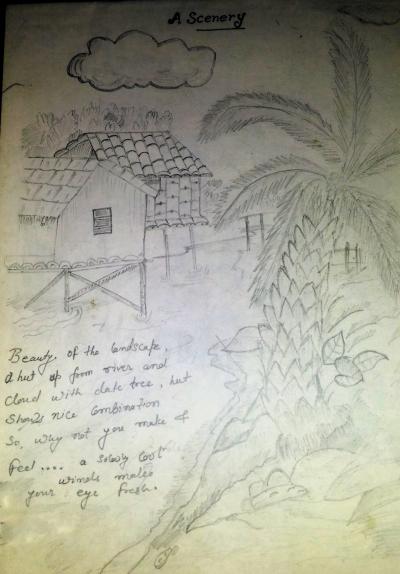 A Scenery
Beauty of the landscape,
A hut up from river and
Cloud with date tree, hut
Shows nice Combination
So, why not you make &
feel .... a slowly cool
winds makes
your eye fresh.